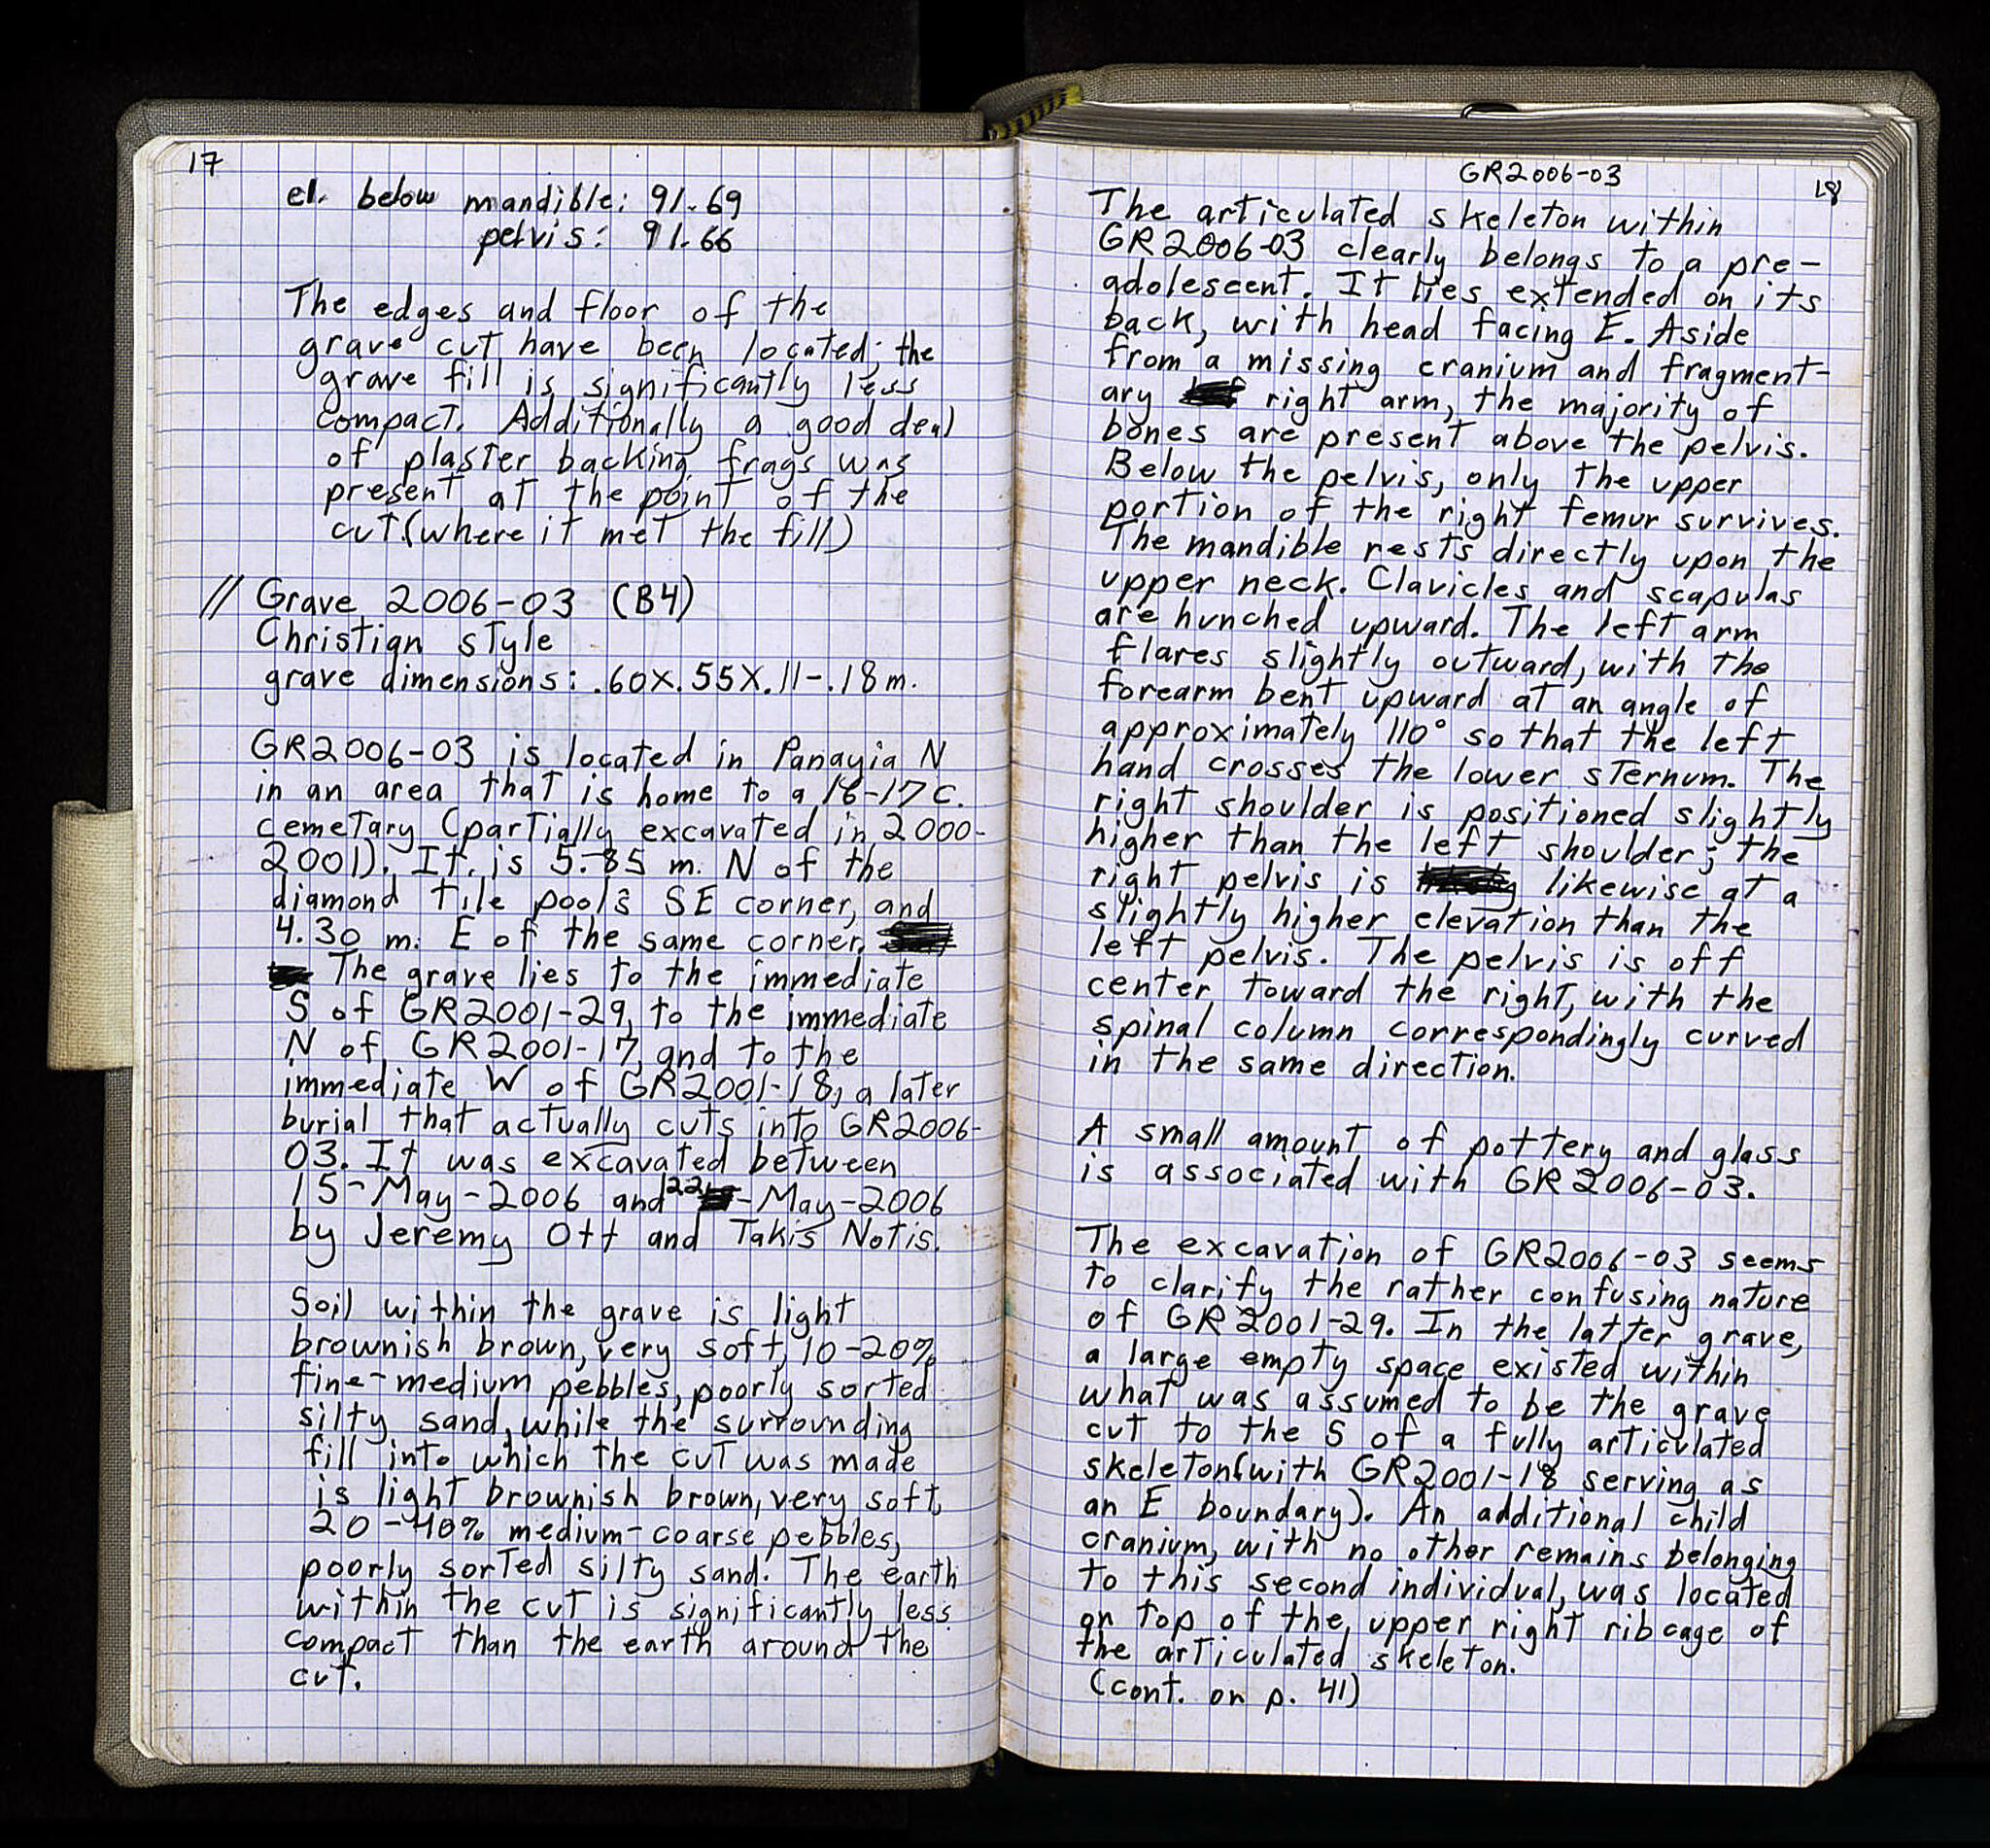 17
el. below mandible: 91.69
pelvis: 91.66
The edges and floor of the
grave cut have been located; the
grave fill is significantly less
compact. Additionally a good deal
of plaster backing frags was
present at the point of the
cut (where it met the fill)
// Grave 2006-03 (B4)
Christian style
grave dimensions: .60x.55x.11-.18m.
GR2006-03 is located in Panayia N
in an area that is home to a 16-17 c.
cemetary (partially excavated in 2000-
2001). It is 5.85 m. N of the
diamond tile pool's SE corner, and
4.30 m. E of the same corner.
The grave lies to the immediate
S of GR2001-29, to the immediate
N of GR2001-17, and to the
immediate W of GR2001-18, a later
burial that actually cuts into GR2006-
03. It was excavated between
15-May-2006 and 22-May-2006
by Jeremy Ott and Takis Notis.
Soil within the grave is light
brownish brown, very soft, 10-20%
fine-medium pebbles, poorly sorted
silty sand, while the surrounding
fill into which the cut was made
is light brownish brown, very soft,
20-40% medium-coarse pebbles,
poorly sorted silty sand. The earth
within the cut is significantly less
compact than the earth around the
cut.
GR2006-03
18
The articulated skeleton within
GR2006-03 clearly belongs to a pre-
adolescent. It lies extended on its
back, with head facing E. Aside
from a missing cranium and fragment-
ary right arm, the majority of
bones are present above the pelvis.
Below the pelvis, only the upper
portion of the right femur survives.
The mandible rests directly upon the
upper neck. Clavicles and scapulas
are hunched upward. The left arm
flares slightly outward, with the
forearm bent upward at an angle of
approximately 110° so that the left
hand crosses the lower sternum. The
right shoulder is positioned slightly
higher than the left shoulder; the
right pelvis is likewise at a
slightly higher elevation than the
left pelvis. The pelvis is off
center toward the right, with the
spinal column correspondingly curved
in the same direction.
A small amount of pottery and glass
is associated with GR2006-03.
The excavation of GR2006-03 seems
to clarify the rather confusing nature
of GR2001-29. In the latter grave,
a large empty space existed within
what was assumed to be the grave
cut to the S of a fully articulated
skeleton (with GR2001-18 serving as
an E boundary). An additional child
cranium, with no other remains belonging
to this second individual, was located
on top of the upper right ribcage of
the articulated skeleton.
(cont. on p. 41)